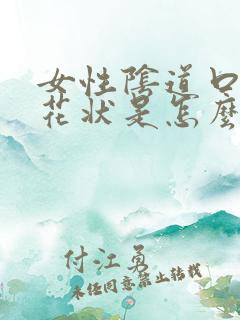 女性陰道口
花狀是怎麼
付江勇
未经同意禁止转载